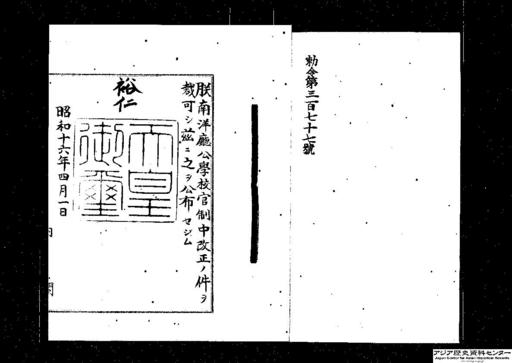 勅令第三百七十七號
朕南洋廳公學校官制中改正ノ件ヲ
裁可シ茲ニ之ヲ公布セシム
裕仁
天皇
御璽
昭和十六年四月一日
内閣
アジア歴史資料センター
Japan Center for Asian Historical Records